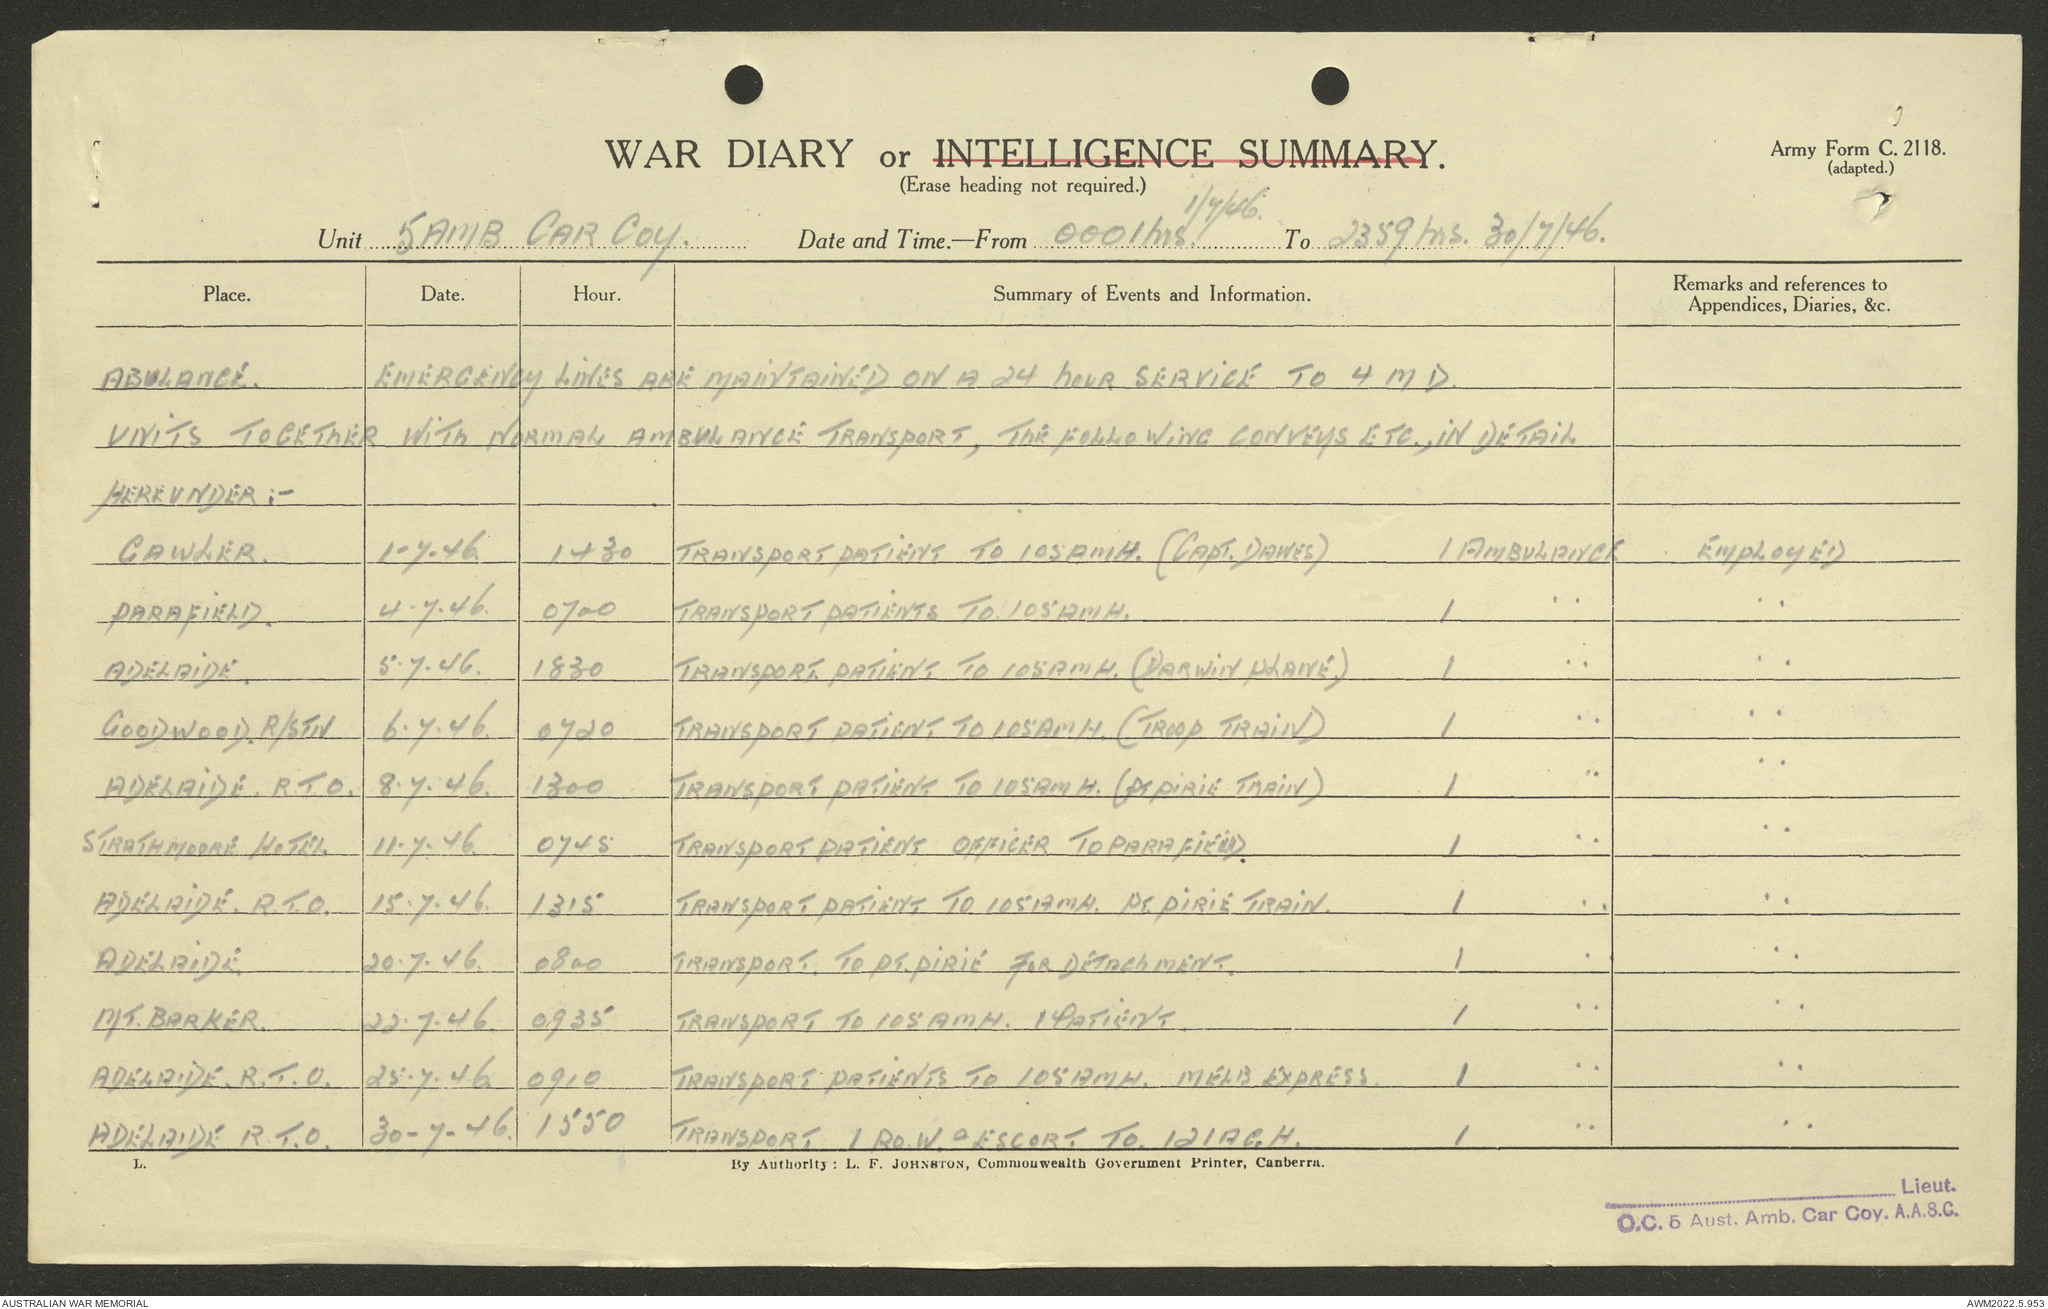 WAR DIARY or INTELLIGENCE SUMMARY.
Army Form C. 2118.
(adapted.)
(Erase heading not required.)
Unit 5 AMB CAR COY. Date and Time.—From 0001hrs. 1/7/46. To 2359 hrs. 30/7/46.
Place. Date. Hour. Summary of Events and Information. Remarks and references to Appendices, Diaries, &c.
ABULANCE. EMERGENCY LINES ARE MAINTAINED ON A 24 hOUR SERVICE TO 4 M D.
UNITS TOGETHER WITH NORMAL AMBULANCE TRANSPORT, THE FOLLOWING CONVEYS ETC., IN DETAIL
HEREUNDER :-
GAWLER. 1-7-46 1430 TRANSPORT PATIENT TO 105 AMH. (CAPT. DAWES) 1 AMBULANCE EMPLOYED
PARAFIELD. 4.7.46. 0700 TRANSPORT PATIENTS TO 105 AMH. 1 " "
ADELAIDE. 5.7.46. 1830 TRANSPORT PATIENT TO 105 AMH. (DARWIN PLANE) 1 " "
GOODWOOD. R/STN 6.7.46. 0720 TRANSPORT PATIENT TO 105 AMH. (TROOP TRAIN) 1 " "
ADELAIDE. R.T.O. 8.7.46. 1300 TRANSPORT PATIENT TO 105 AMH. (PT PIRIE TRAIN) 1 " "
STRATHMOORE HOTEL 11.7.46. 0745 TRANSPORT PATIENT OFFICER TO PARAFIELD. 1 " "
ADELAIDE. R.T.O. 15.7.46. 1315 TRANSPORT PATIENT TO 105 AMH. PT. PIRIE TRAIN. 1 " "
ADELAIDE 20.7.46. 0800 TRANSPORT. TO PT. PIRIE FOR DETACHMENT. 1 " "
MT. BARKER. 22.7.46. 0935 TRANSPORT TO 105 AMH. 1 PATIENT. 1 " "
ADELAIDE. R.T.O. 25.7.46 0910 TRANSPORT PATIENTS TO 105 AMH. MELB EXPRESS. 1 " "
ADELAIDE R.T.O. 30-7-46. 1550 TRANSPORT 1 P.O.W. & ESCORT TO. 121 A.G.H. 1 " "
L. By Authority : L. F. JOHNSTON, Commonwealth Government Printer, Canberra.
Lieut.
O.C. 5 Aust. Amb. Car Coy. A.A.S.C.
AUSTRALIAN WAR MEMORIAL AWM2022.5.953